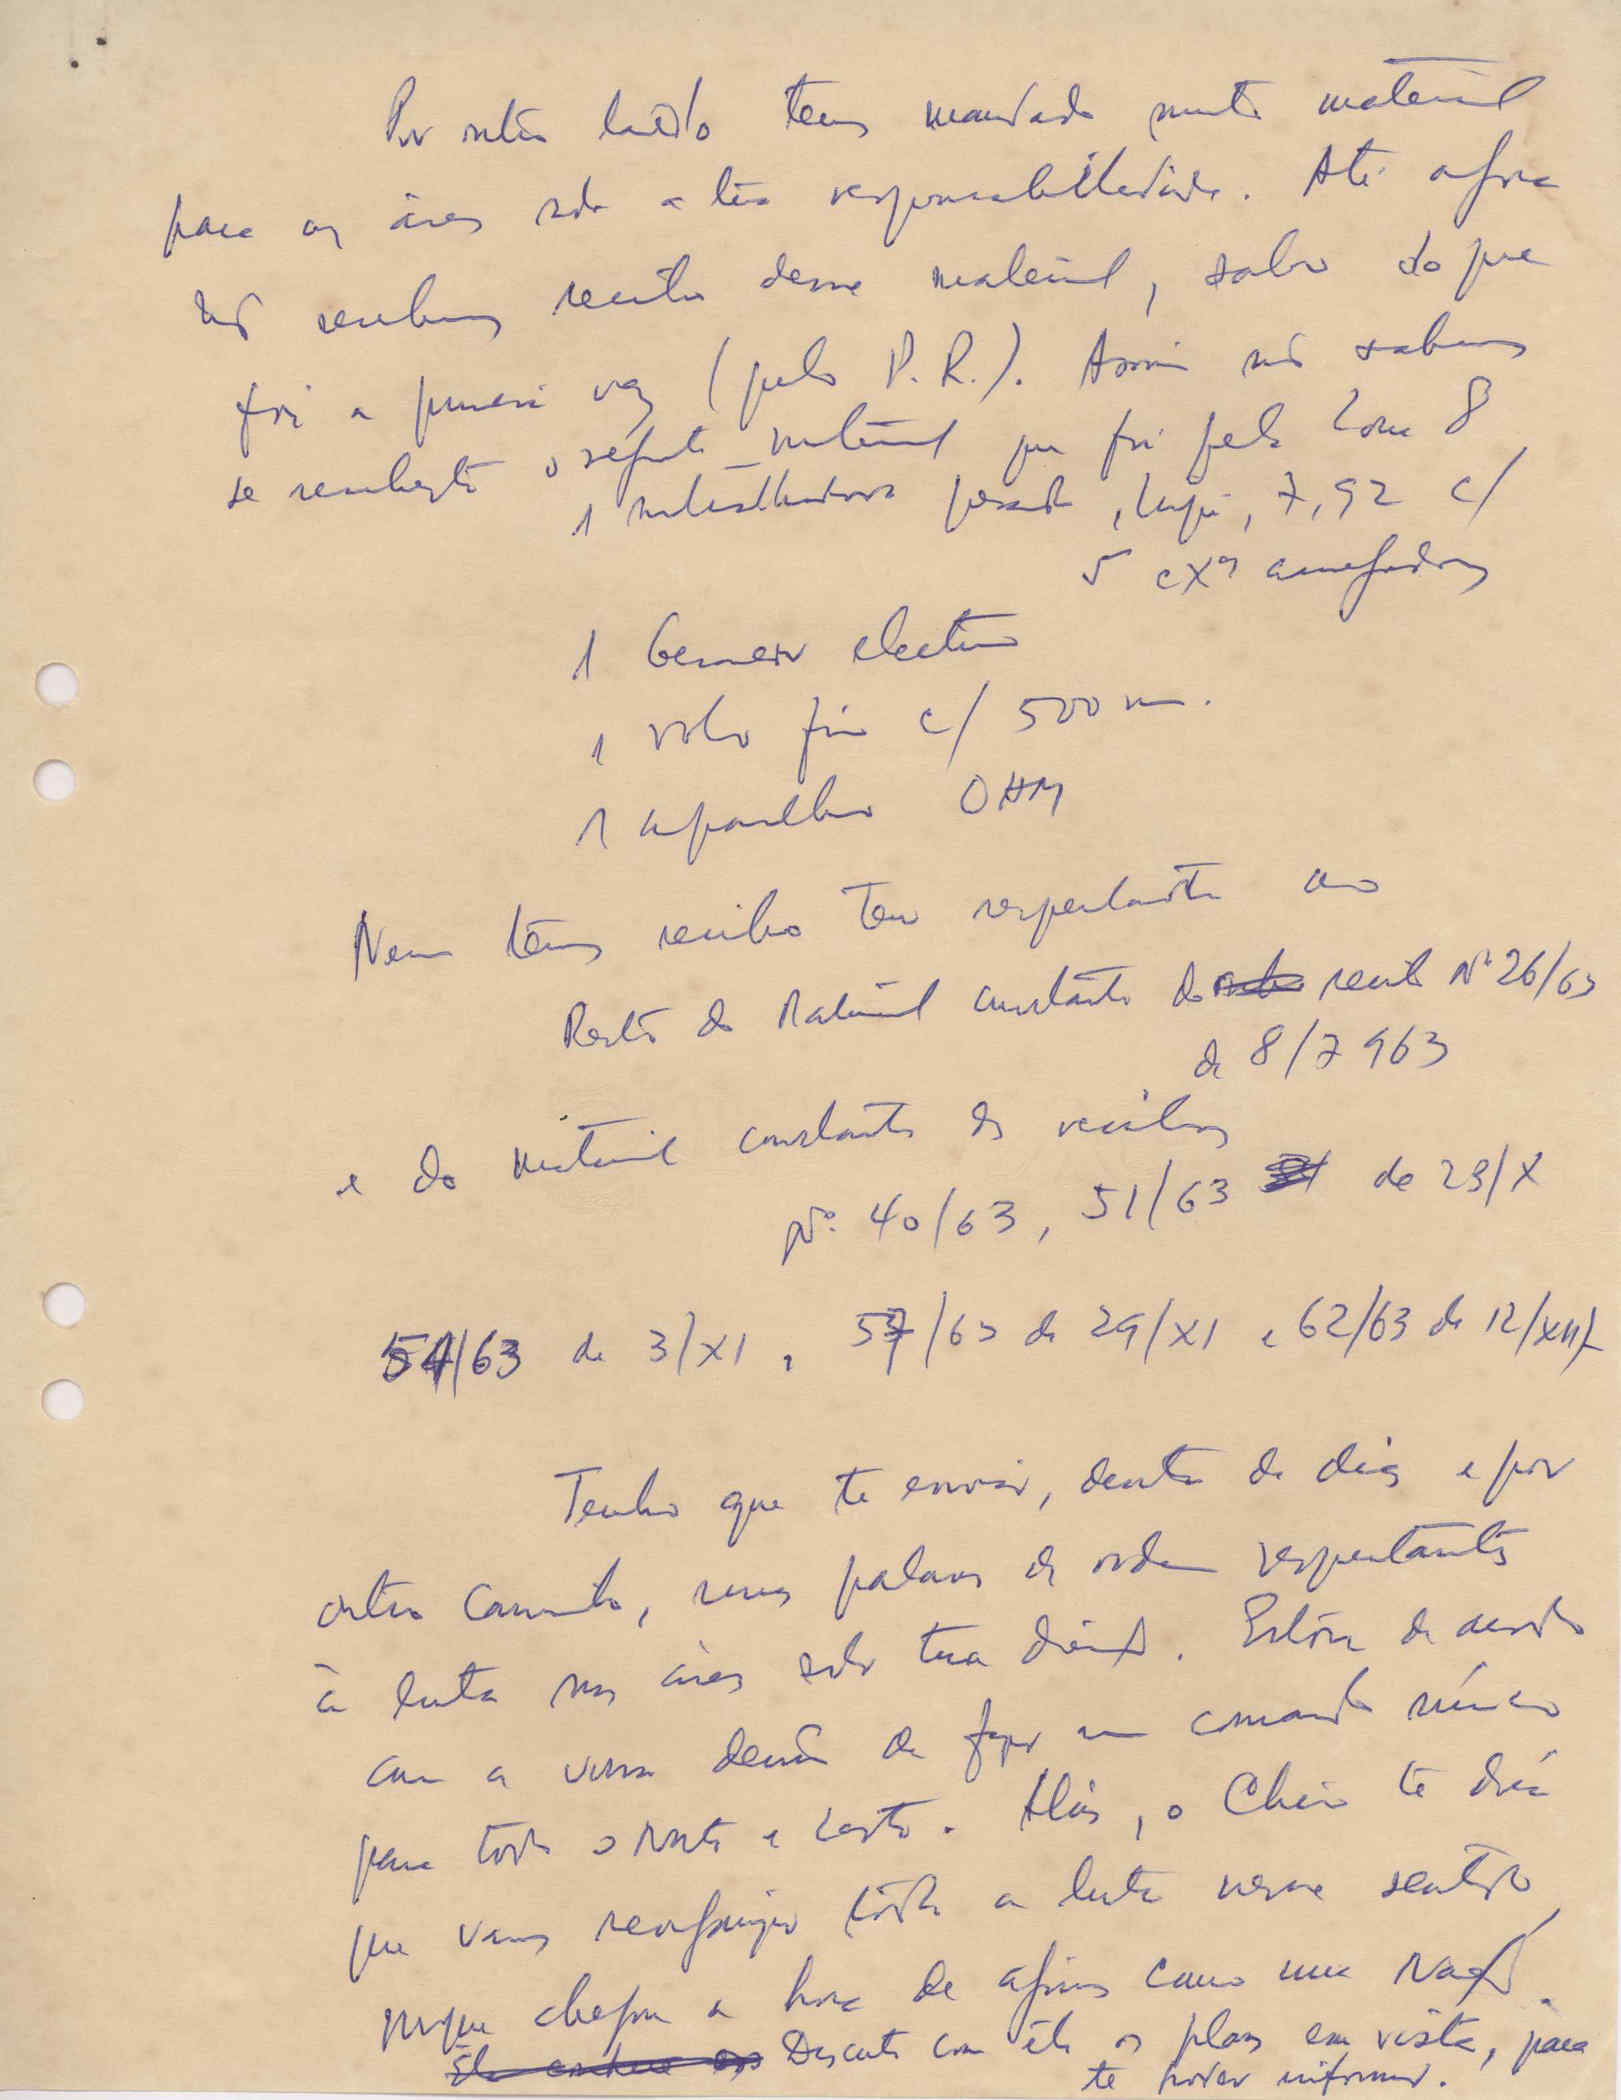 Por outro lado temos mandado muito material
para as áreas sob a tua responsabilidade. Até agora
não recebemos recibo desse material, salvo do que
foi a primeira vez (pelo P.R.). Assim não sabemos
se recebeste o seguinte material que foi pela Zona 8
1 metralhadora pesada, 7,92 c/
5 cxas carregadoras
1 Gerador electrico
1 rolo fio c/ 500 m.
1 aparelho OHM
Nem temos recibo teu respeitante ao
Resto do Material constante do recibo Nº 26/63
de 8/7 963
e do material constante dos recibos
Nº 40/63, 51/63 de 23/X
54/63 de 3/XI, 57/63 de 29/XI e 62/63 de 12/XII
Tenho que te enviar, dentro de dias e por
outro caminho, umas palavras de ordem respeitantes
à luta nas áreas sob tua direcção. Estou de acordo
com a vossa decisão de fazer um comando único
para todo o Norte e Leste. Aliás, o Chico te dirá
que vamos reorganizar toda a luta nesse sentido
porque chegou a hora de agirmos como uma Nação.
Discute com êle os planos em vista, para
te poder informar.